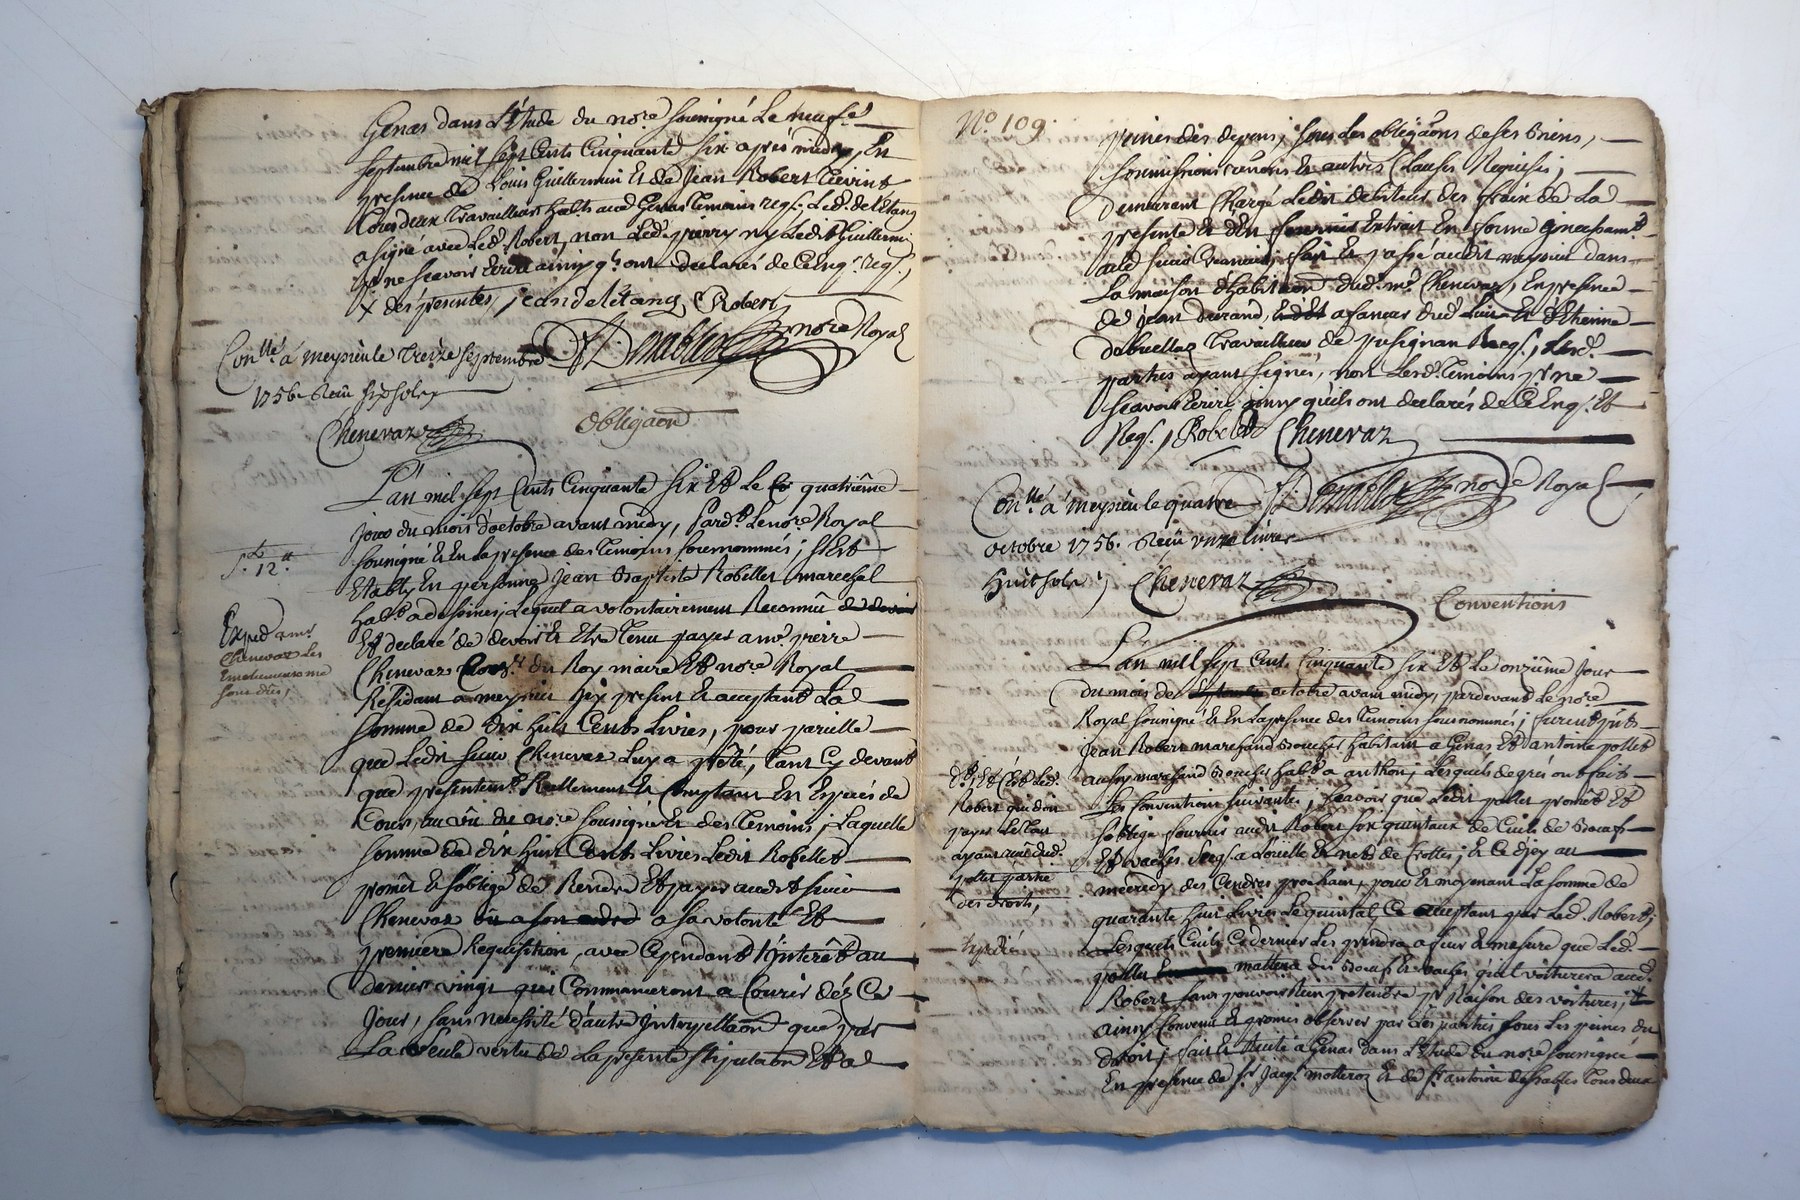 Genas dans L'Etude du no.re soussigné Le neufe
septembre mil sept Cents Cinquante Six après midy, En
presence de Louis Guillermin Et de Jean Robert
Tous deux Travailleurs habts aud Genas Temoins reqs. Led. deLétang
a signé avec Led Robert, non Led. pierry ny Ledt Guillermin
p.r ne scavoir Ecrire ainsy qs. ont declarés de Ce Enq.s reqs.,
X des presentes, jean deletang Robert
no.re Royal
Con.llé à meysieu le Treize Septembre
1756. Reçu six sols
Chenevaz
Obligaon
L'an mil sept Cents Cinquante six Et Le quatrième
jour du mois d'octobre avant midy, Pard.t Le no.re Royal
soussigné Et En La presence des Temoins sousnommés; s'Est
Etably En personne Jean Baptiste Robellet marechal
hab.t a ; Lequel a volontairement Reconnû
Et declaré de devoir Et Etre Tenu payer a m.r pierre
Chenevaz du Roy maire Et no.re Royal
Residant a meysieu icy present Et acceptant La
somme de dix huit Cents Livres, pour pareille
que Ledit sieur Chenevaz Luy a prêté, Tant Cy devant
que presentem.t Reellement Et Comptant En Especes de
Cours, au vû du no.re soussigné Et des Temoins; Laquelle
somme de dix huit Cents Livres Ledit Robellet
promêt Et s'oblige de Rendre Et payer audit sieur
Chenevaz a sa volonté Et
premiere Requisition, avec Cependant l'jnterêt au
denier vingt qui Commanceront a Courir dés Ce
Jour, sans necessité d'autre jnterpellaon que par
La seule vertu de La presente stipulaon Et a
12.
Exped. a m.r
Chenevaz Les
Emolumens me
sont dûs;
N.o 109.
peines des depens, sous Les obligaons de ses Biens,
soumissions Et autres Clauses Requises;
demeurent Chargé Ledit debiteur des fraix de La
presente Et d'En fournir Extrait En forme
aud sieur Creancier, fait Et passé audit meysieu dans
La maison d'habitaon dud. m.r Chenevaz, En presence
de jean durand, a fancas dud. Lieu Et d'Etienne
Travailleur de pusignan Reqs.,
parties ayant signés, non Lesd. Temoins p.r ne
scavoir Ecrire ainsy qu'ils ont declarés de Ce Enq.s Et
Reqs., Robellet Chenevaz
no.re Royal
Con.llé à meysieu le quatre
octobre 1756. Reçu onze livres
huit sols Chenevaz
Conventions
L'an mil sept Cents Cinquante six Et Le onzième jour
du mois de octobre avant midy, pardevant Le no.re
Royal soussigné Et En La presence des Temoins sousnommés; furent p.nts
jean Robert marchand Boucher habitant a Genas Et antoine pollet
aussy marchand Boucher hab.t a anthon; Lesquels de gré ont faits
Les Conventions suivantes, scavoir que Ledit pollet promêt Et
s'oblige fournir audit Robert six quintaux de Cuirs de Bœufs
Et vaches Et nets de Crottes; Et Ce d'jcy au
mecredy des Cendres prochain, pour Et moyenant La somme de
quarante huit Livres Le quintal, Ce acceptant par Led. Robert;
Lesquels Cuirs Ce dernier Les prendra a fur Et mesure que Led.
pollet mattera des Bœufs Et vaches qu'il voiturera aud.
Robert sans pouvoir Rien pretendre p.r Raison des voitures;
ainsy Convenu Et promis observer par Les parties sous Les peines du
droit; fait Et Recité à Genas dans L'Etude du no.re soussigné
En presence de s.r Jacq.s mottoroz Et de s.r antoine desSables Tous deux
Robert qui doit
payer Le Tout
ayant led.
pollet partie
des droits,
Expedié